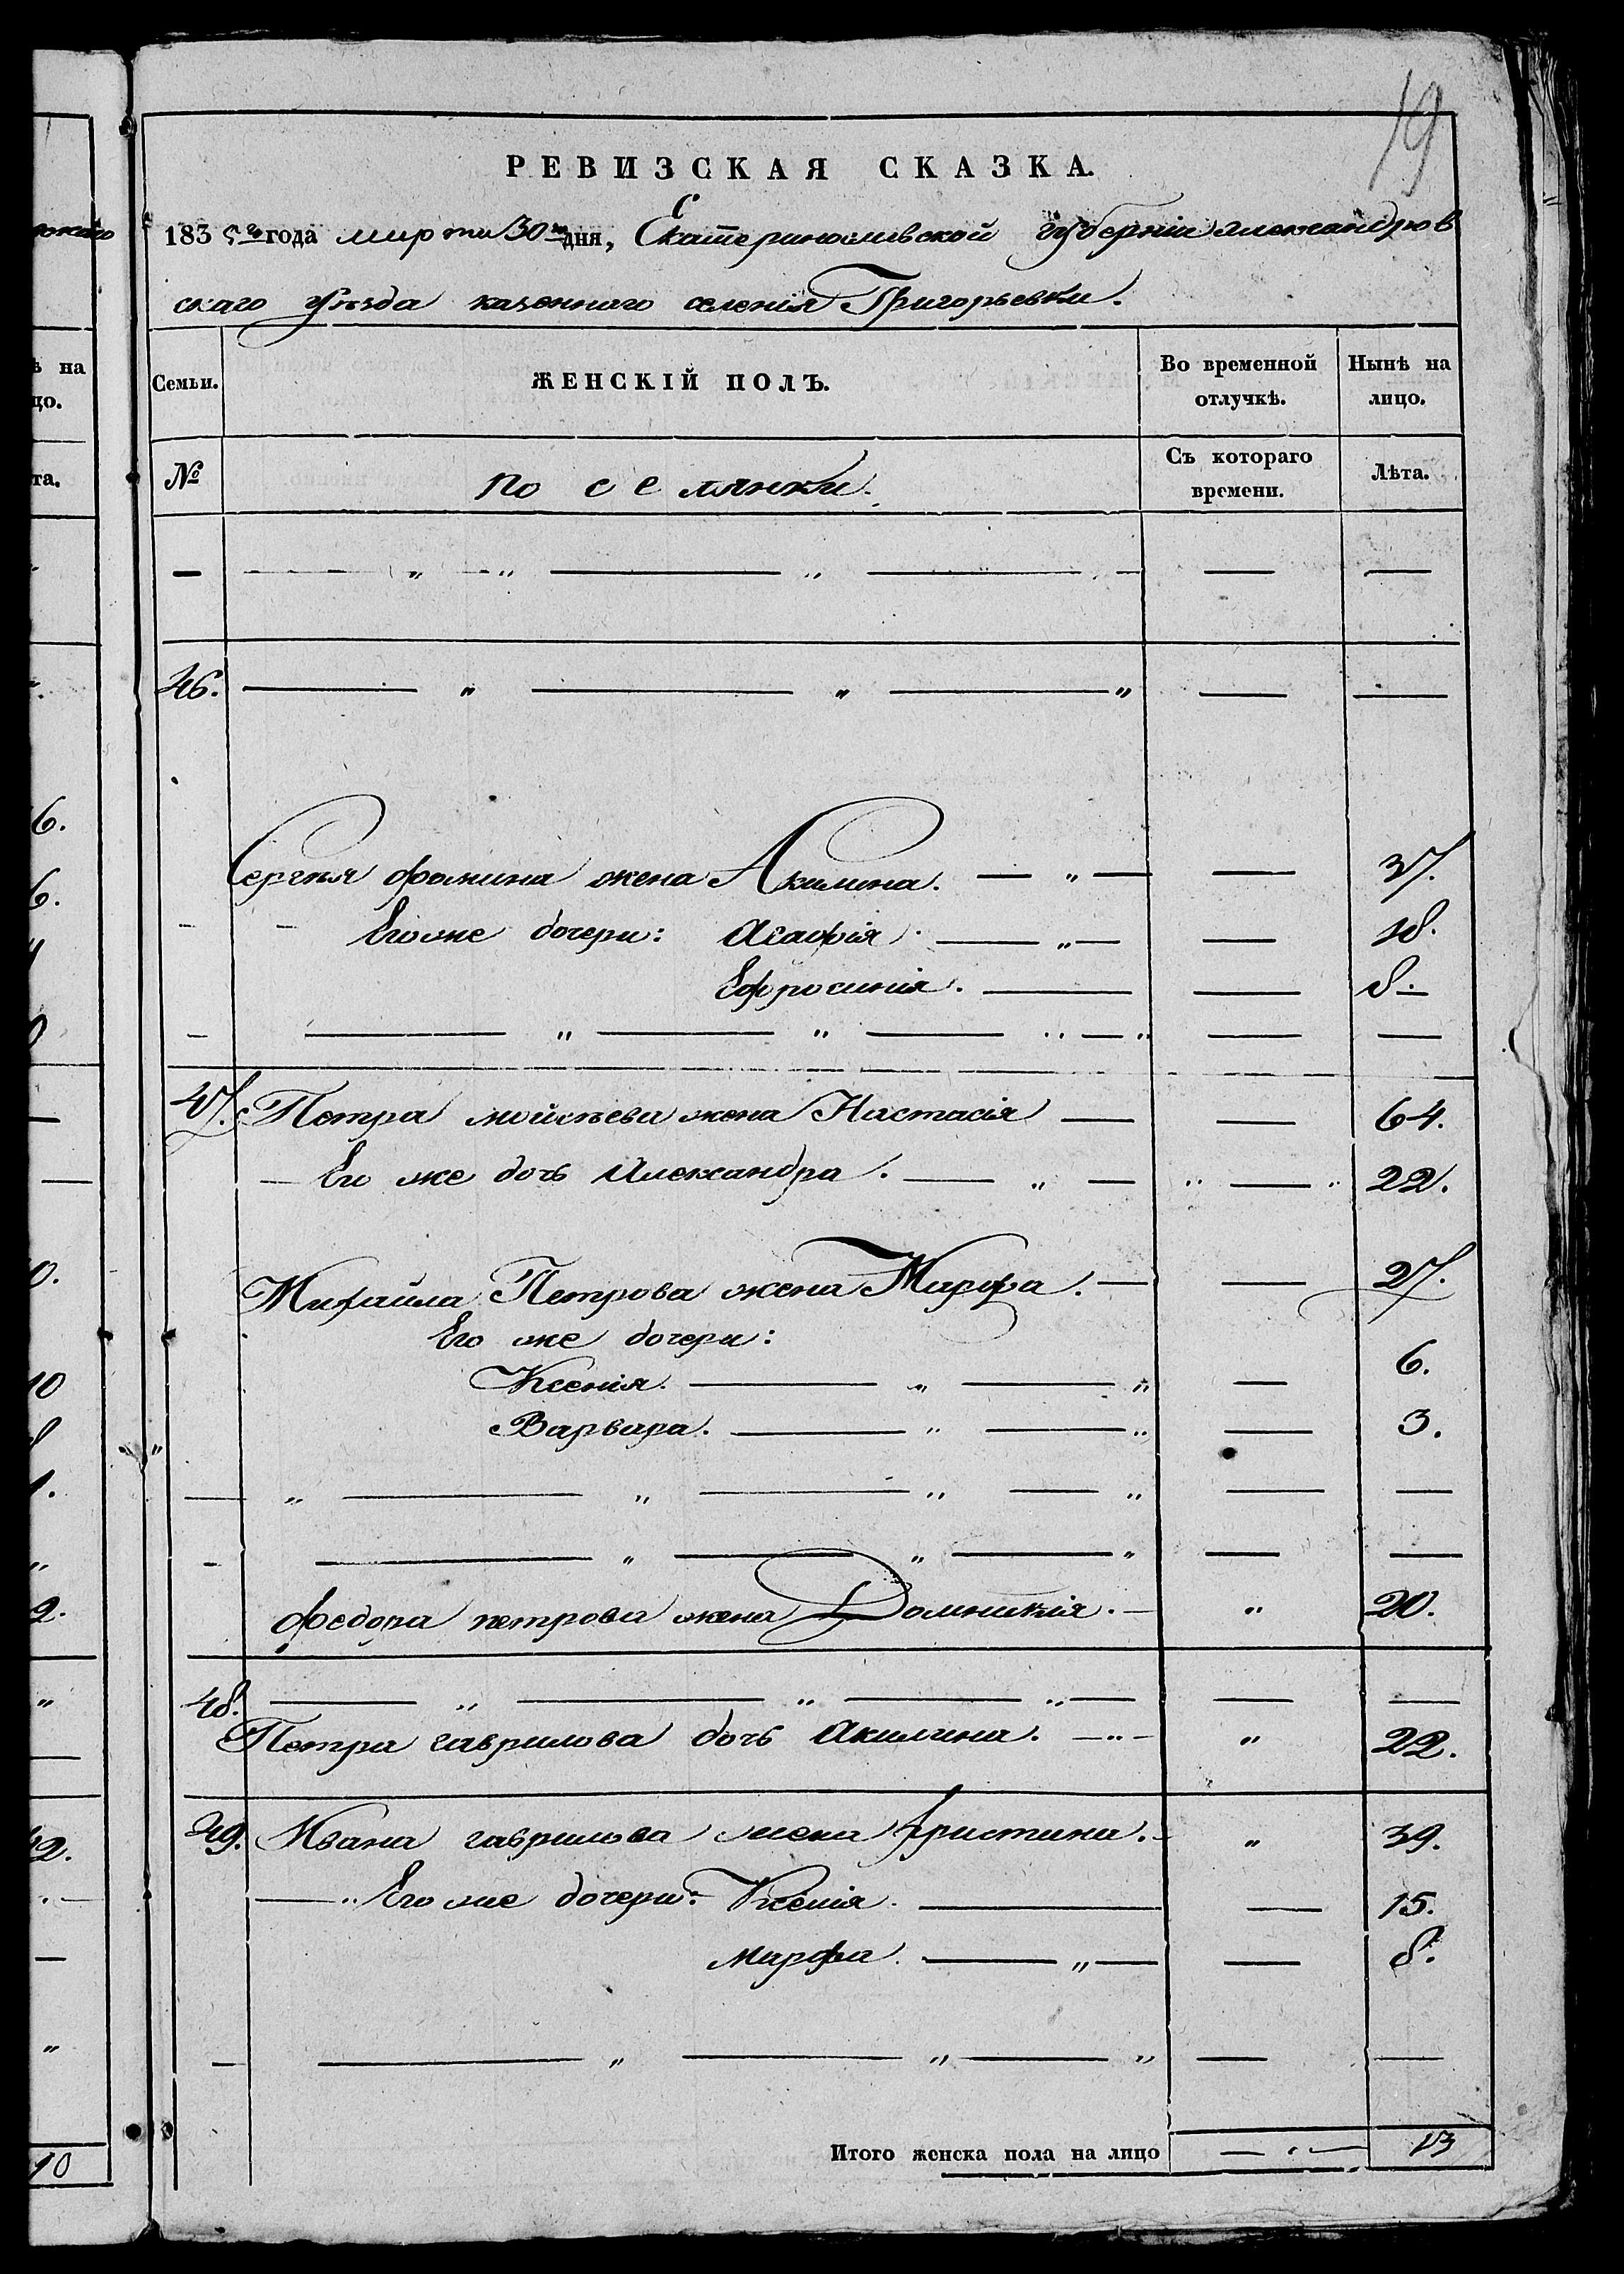 19
РЕВИЗСКАЯ СКАЗКА.
1835го года марта 30го дня, Екатеринославской губерніи александров
скаго уѣзда казеннаго селенія Григорьевки.
Семьи. ЖЕНСКІЙ ПОЛЪ. Во временной отлучкѣ. Нынѣ на лицо.
№ поселянки. Съ котораго времени. Лѣта.
46.
Сергѣя фомина жена Акилина. 37.
Его же дочери: Агафія. 18.
Ефросинія. 8.
47. Петра мойсѣева жена Настасія 64.
Его же дочь Александра. 22.
Михаила Петрова жена Марфа. 27.
Его же дочери:
Ксенія. 6.
Варвара. 3.
федора петрова жена Домникія. 20.
48.
Петра гаврилова дочь Акилина. 22.
49. Ивана гаврилова жена Христина. 39.
Его же дочери: Ксенія. 15.
Марфа. 8.
Итого женска пола на лицо 13